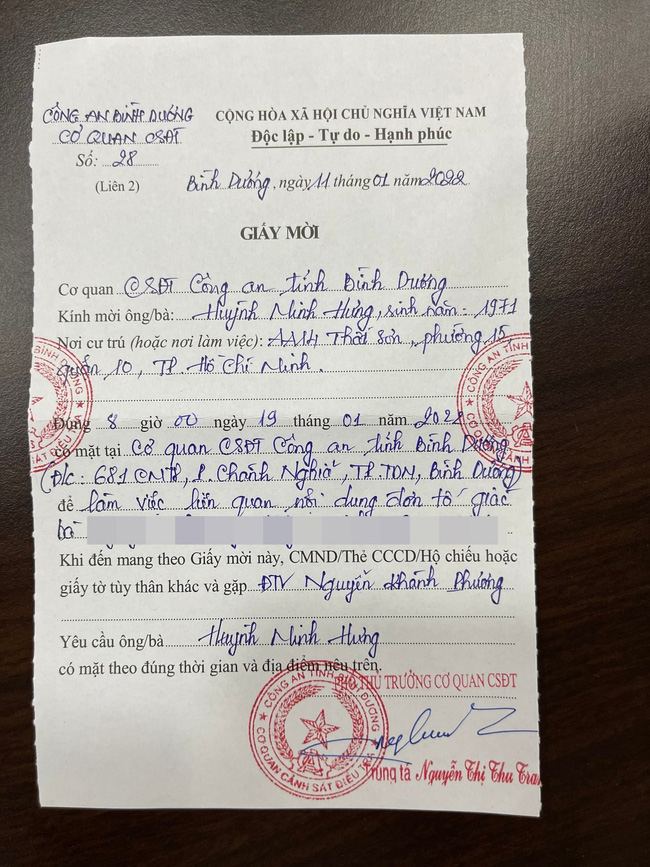 CÔNG AN BÌNH DƯƠNG
CƠ QUAN CSĐT
Số: 28
(Liên 2)
CỘNG HÒA XÃ HỘI CHỦ NGHĨA VIỆT NAM
Độc lập - Tự do - Hạnh phúc
Bình Dương, ngày 11 tháng 01 năm 2022
GIẤY MỜI
Cơ quan CSĐT Công an tỉnh Bình Dương
Kính mời ông/bà: Huỳnh Minh Hưng, sinh năm: 1971
Nơi cư trú (hoặc nơi làm việc): AA14 Thất Sơn, phường 15,
quận 10, TP. Hồ Chí Minh.
Đúng 8 giờ 00 ngày 19 tháng 01 năm 2022
có mặt tại Cơ quan CSĐT Công an tỉnh Bình Dương
(Đ/c: 681 CMT8, P. Chánh Nghĩa, TP. TDM, Bình Dương)
để làm việc liên quan nội dung đơn tố giác
bà
Khi đến mang theo Giấy mời này, CMND/Thẻ CCCD/Hộ chiếu hoặc
giấy tờ tùy thân khác và gặp ĐTV Nguyễn Khánh Phương
Yêu cầu ông/bà Huỳnh Minh Hưng
có mặt theo đúng thời gian và địa điểm nêu trên.
PHÓ THỦ TRƯỞNG CƠ QUAN CSĐT
CÔNG AN TỈNH BÌNH DƯƠNG
CƠ QUAN CẢNH SÁT ĐIỀU TRA
Trung tá Nguyễn Thị Thu Tran